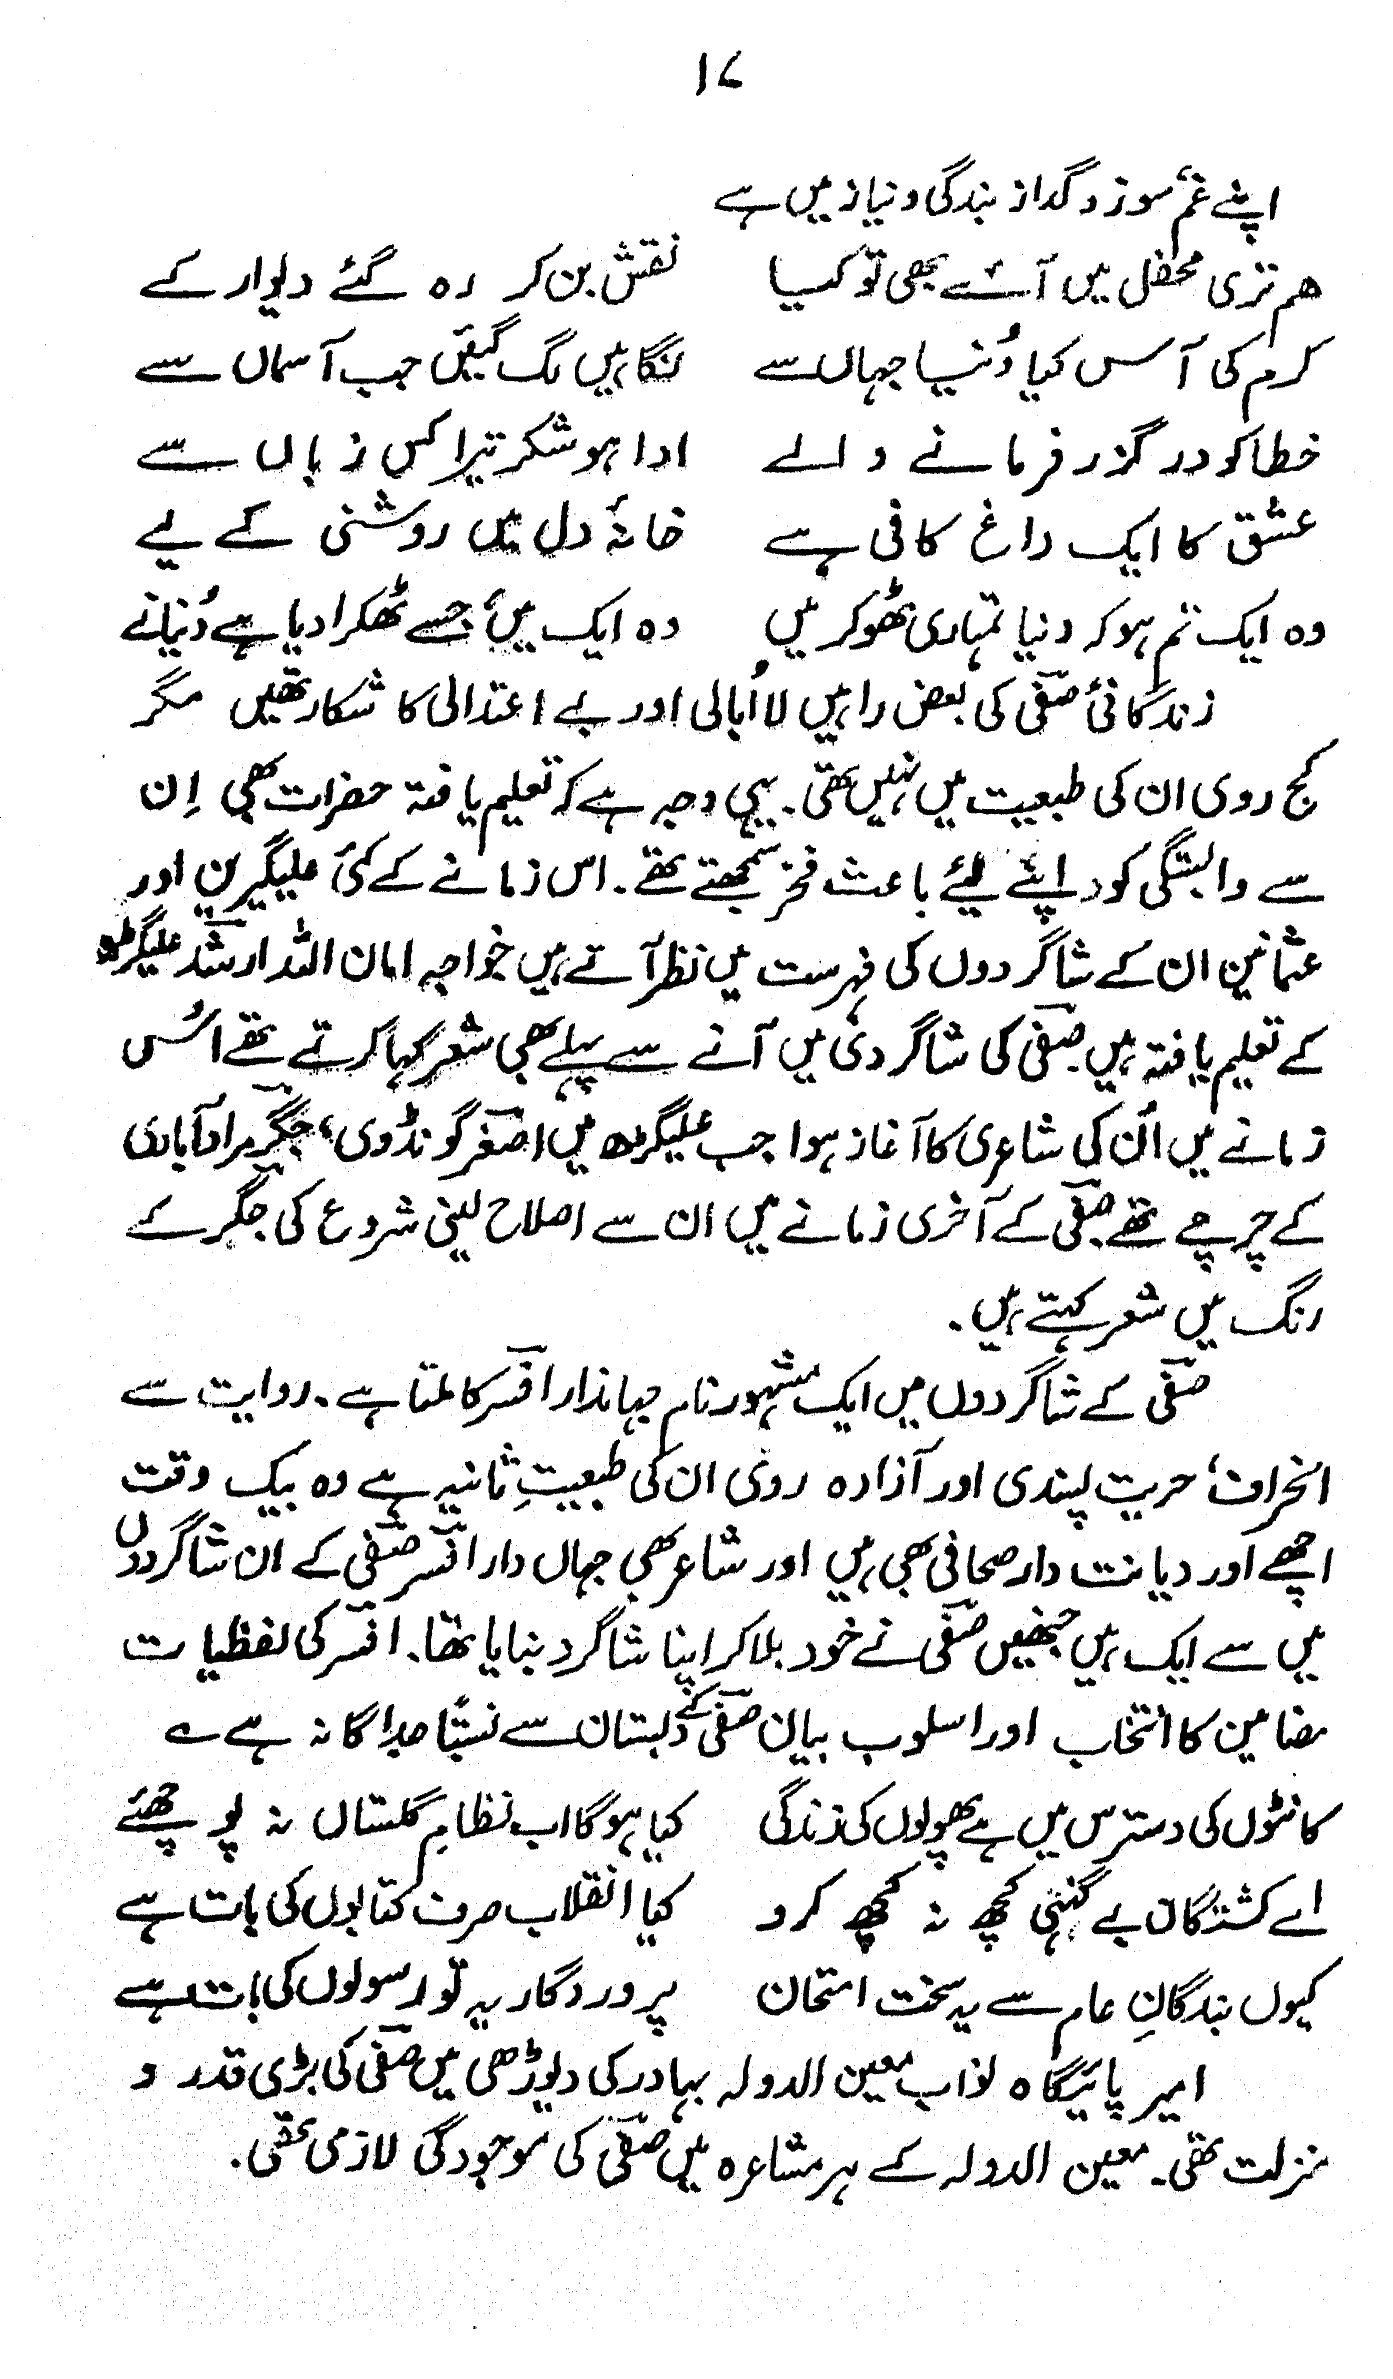 ۱۷
اپنے غم، سوز و گداز بندگی و نیاز میں ہے
ہم تری محفل میں آئے بھی تو کیا نقش بن کر رہ گئے دیوار کے
کرم کی آس کیا دُنیا جہاں سے نگاہیں لگ گئیں جب آسماں سے
خطا کو درگزر فرمانے والے ادا ہو شکر تیرا کس زباں سے
عشق کا ایک داغ کافی ہے خانۂ دل میں روشنی کے لیے
وہ ایک تم ہو کہ دنیا تمہاری ٹھوکر میں وہ ایک میں، جسے ٹھکرا دیا ہے دُنیا نے
زندگانیٔ صفیؔ کی بعض راہیں لااُبالی اور بے اعتدالی کا شکار تھیں مگر
کج روی ان کی طبیعت میں نہیں تھی۔ یہی وجہ ہے کہ تعلیم یافتہ حضرات بھی اِن
سے وابستگی کو اپنے لیئے باعث فخر سمجھتے تھے۔ اس زمانے کے کئی علیگیرین اور
عثمانین ان کے شاگردوں کی فہرست میں نظر آتے ہیں خواجہ امان اللہ ارشدؔ علیگڑھ
کے تعلیم یافتہ ہیں صفیؔ کی شاگردی میں آنے سے پہلے بھی شعر کہا کرتے تھے اُس
زمانے میں اُن کی شاعری کا آغاز ہوا جب علیگڑھ میں اصغرؔ گونڈوی، جگرؔ مرادآبادی
کے چرچے تھے صفیؔ کے آخری زمانے میں ان سے اصلاح لینی شروع کی جگر کے
رنگ میں شعر کہتے ہیں۔
صفیؔ کے شاگردوں میں ایک مشہور نام جہاندار افسرؔ کا ملتا ہے۔ روایت سے
انحراف، حریت پسندی اور آزادہ روی ان کی طبعیتِ ثانیہ ہے وہ بیک وقت
اچھے اور دیانت دار صحافی بھی ہیں اور شاعر بھی جہاں دار افسرؔ صفیؔ کے ان شاگردوں
میں سے ایک ہیں جنھیں صفیؔ نے خود بلا کر اپنا شاگرد بنایا تھا۔ افسرؔ کی لفظیات
مضامین کا انتخاب اور اسلوب بیان صفیؔ کے دبستان سے نسبتًا جداگانہ ہے ؎
کانٹوں کی دسترس میں ہے پھولوں کی زندگی کیا ہوگا اب نظامِ گلستاں نہ پوچھئے
اے کشتگان بے گنہی کچھ نہ کچھ کرو کیا انقلاب صرف کتابوں کی بات ہے
کیوں بندگانِ عام سے یہ سخت امتحان پروردگار یہ تو رسولوں کی بات ہے
امیر پائیگاہ نواب معین الدولہ بہادر کی دیوڑھی میں صفیؔ کی بڑی قدر و
منزلت تھی۔ معین الدولہ کے ہر مشاعرہ میں صفیؔ کی موجودگی لازمی تھی۔